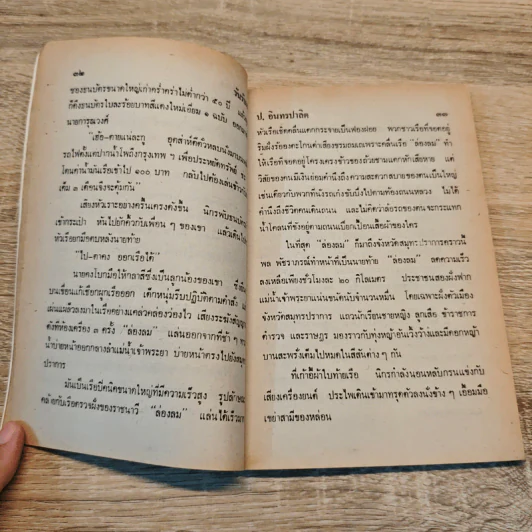 ๓๒
ของธนบัตรขนาดใหญ่เก่าคร่ำคร่าไม่ต่ำกว่า ๕๐ ปี
ก็ดึงธนบัตรใบละร้อยบาทสีแดงใหม่เอี่ยม ๑ ฉบับ
นายการุณวงศ์
"เฮ้อ-ตายแน่ละกู
รถไฟตั้งแต่ปากน้ำโพถึงกรุงเทพ ๆ เพื่อประหยัดทรัพย์
โดนค่าน้ำมันเรือเข้าไป ๑๐๐ บาท กลับไปต้องเล่นข้าว
เต็ม ๓ เดือนจึงจะคุ้มกัน"
เสียงหัวเราะอย่างครื้นเครงดังขึ้น นิกรพับธนบัตร
เข้ากระเป๋า หันไปยักคิ้วกับเพื่อน ๆ ของเขา แล้วเดิน
หัวเรือยกมือตบหลังนายท้าย
"ไป-ตาคง ออกเรือได้"
นายคงโบกมือให้กลาสีซึ่งเป็นลูกน้องของเขา
บนเขื่อนแก้เชือกผูกเรือออก เด็กหนุ่มรีบปฏิบัติตามคำสั่ง
เผ่นแผล็วลงมาในเรืออย่างแคล่วคล่องว่องไว เสียงระฆังสัญญาณ
ดังที่ห้องเครื่อง ๓ ครั้ง "ล่องลม" แล่นออกจากที่ช้า ๆ
น้ำบ่ายหน้าออกกลางลำแม่น้ำเจ้าพระยา บ่ายหน้าตรงไปยัง
ปราการ
มันเป็นเรือปิคนิคขนาดใหญ่ที่มีความเร็วสูง รูปลักษณะ
คล้ายกับเรือตรวจฝั่งของราชนาวี "ล่องลม" แล่นได้เร็ว
ป. อินทรปาลิต
๓๓
หัวเรือเชิดคลื่นแตกกระจายเป็นฟองฝอย พวกชาวเรือที่จอดอยู่
ริมฝั่งร้องตะโกนด่าเสียงขรมถมเถเพราะคลื่นเรือ "ล่องลม" ทำ
ให้เรือที่จอดอยู่โคลงเคลงข้าวของถ้วยชามแตกหักเสียหาย แต่
วิสัยของคนมีเงินย่อมคำนึงถึงความสะดวกสบายของตนเป็นใหญ่
เช่นเดียวกับพวกที่นั่งรถเก๋งขับปั๋งไปตามท้องถนนหลวง ไม่ได้
คำนึงถึงชีวิตคนเดินถนน และไม่คิดว่าล้อรถของตนจะกระแทก
น้ำโคลนที่ขังอยู่ตามถนนเปียกเปื้อนเสื้อผ้าของใคร
ในที่สุด "ล่องลม" ก็มาถึงจังหวัดสมุทรปราการคราวนี้
พล พัชราภรณ์ทำหน้าที่เป็นนายท้าย "ล่องลม" ลดความเร็ว
ลงเหลือเพียงชั่วโมงละ ๒๐ กิโลเมตร ประชาชนสองฝั่งฟาก
แม่น้ำเจ้าพระยาแน่นขนัดนับจำนวนหมื่น โดยเฉพาะฝั่งตัวเมือง
จังหวัดสมุทรปราการ แถวนักเรียนชายหญิง ลูกเสือ ข้าราชการ
ตำรวจ และราษฎร มองราวกับทุ่งหญ้าอันเวิ้งว้างและมีดอกหญ้า
บานสะพรั่งเต็มไปหมดในสีสันต่าง ๆ กัน
ที่เก้าอี้ผ้าใบท้ายเรือ นิกรกำลังนอนหลับกรนแข่งกับ
เสียงเครื่องยนต์ ประไพเดินเข้ามาทรุดตัวลงนั่งข้าง ๆ เอื้อมมือ
เขย่าสามีของหล่อน